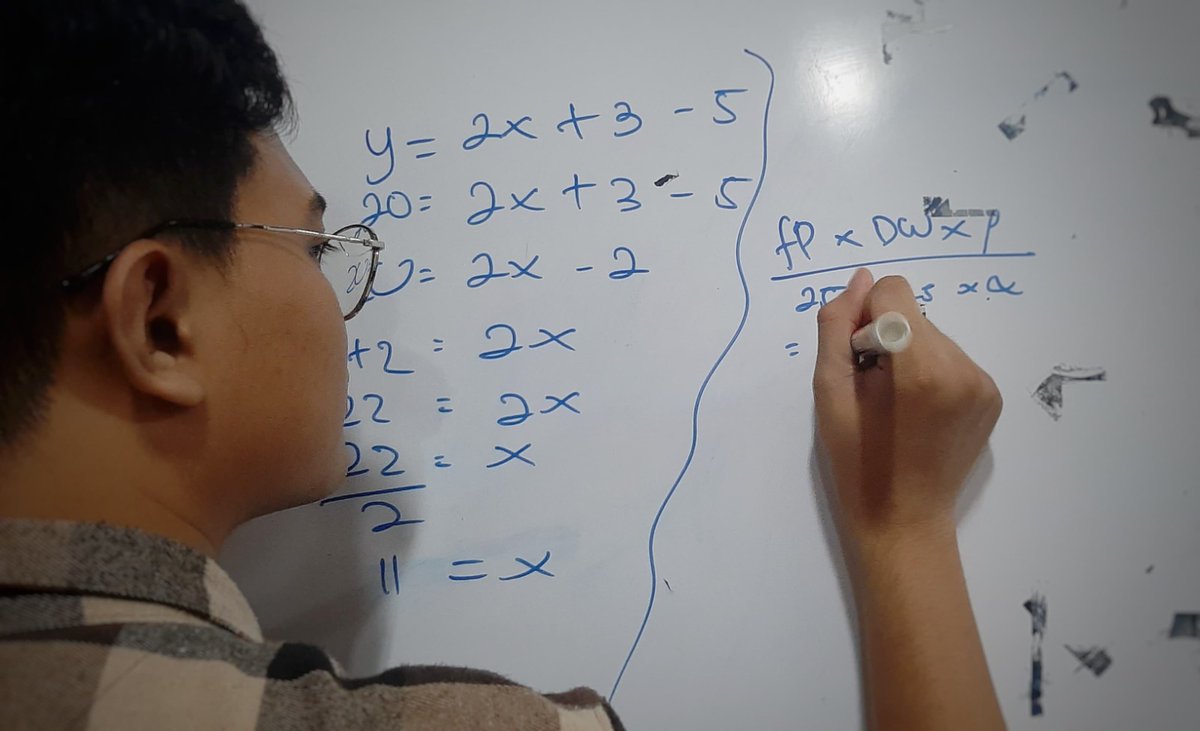 y = 2x + 3 - 5
20 = 2x + 3 - 5
= 2x - 2
+2 = 2x
22 = 2x
22 = x
2
11 = x
fp x DW x p
x
=